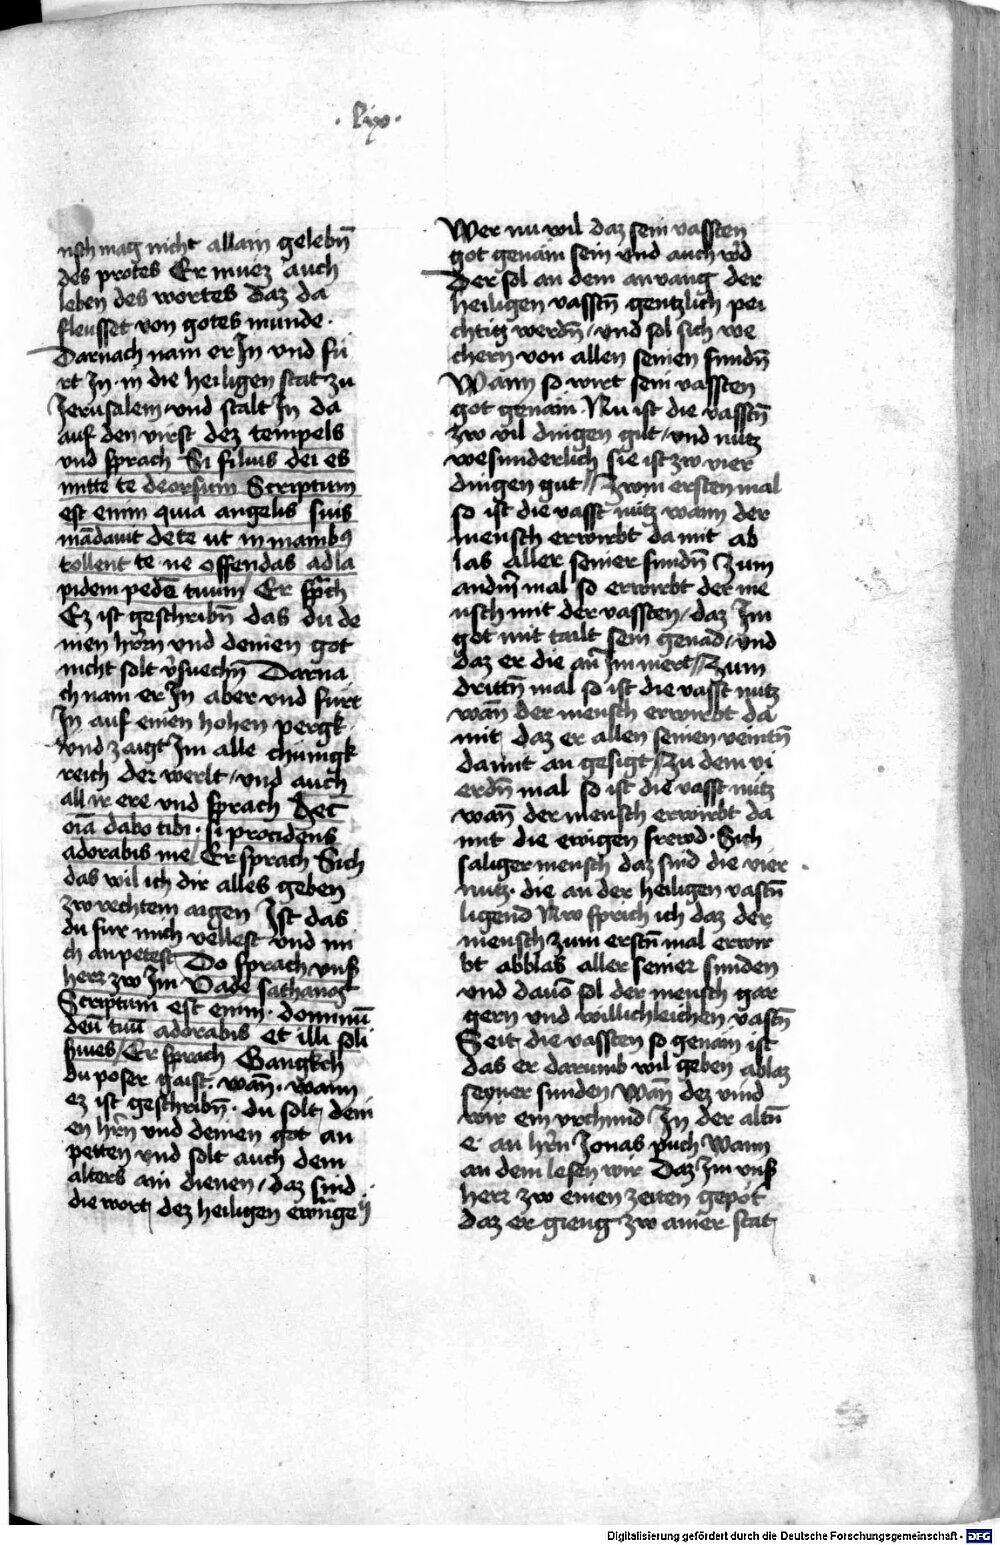 · lix ·
nsch mag nicht allain gelebn̄
des protes Er muez auch
leben des wortes daz da
fleusset von gotes munde ·
Darnach nam er In vnd fü
rt In · in die heiligen stat zu
Jerusalem / vnd stalt In da
auf den virst dez tempels
vnd sprach Si filius dei es
mitte te deorsum Scriptum
est enim quia angelis suis
mādauit de te ut in manibꝰ
tollent te ne offendas ad la
pidem pedē tuum / Er sprach
Ez ist geschribn̄ das du de
inen hr̄rn vnd deinen got
nicht solt v̄suechn̄ Darna
ch nam er In aber vnd fürt
In auf einen hohen pergk ·
Vnd zaigt Im alle chünigk
reich der werlt / vnd auch
all ir ere vnd sprach hec
oīa dabo tibi · si procidens
adorabis me / Er sprach Sich
das wil ich dir alles geben
zw rechtem aigen Ist das
du für mich vellest vnd mi
ch anpetest Do sprach vnser
herr zw Im Vade sathanas
Scriptum est enim · dominū
deū tuū adorabis et illi soli
seruies / Er sprach Gangkch
du poser gaist · wān · wann
ez ist geschribn̄ · du solt dein
en hr̄n vnd deinen got an
petten vnd solt auch dem
alters ain dienen / daz sind
die wort dez heiligen ewnge ij
Wer nu wil daz sein vassten
got genäm sein vnd auch w̄d
Der sol an dem anvang der
heiligen vasstn̄ gentzlich pei
chtig werdn̄ / vnd sol sich we
chern von allen seinen sundn̄
Wann so wirt sein vassten
got genäm · Nu ist die vasstn̄
zw vil dingen gut / vnd nutz
wesunderlich sie ist zw vier
dingen gut // Zwm ersten mal
so ist die vasst nutz wann der
mensch erwirbt da mit ab
las aller seiner sundn̄ Zum
andn̄ mal so erwirbt der me
nsch mit der vassten / daz Im
got mit tailt sein genad / vnd
daz er die an Im mert // Zum
drittn̄ mal so ist die vasst nutz
wān der mensch erwirbt da
mit daz er allen seinen veintn̄
damit an gesigt // Zu dem vi
erdn̄ mal so ist die vasst nutz
wān der mensch erwirbt da
mit die ewigen frewd · Sich
saliger mensch daz sind die vier
nutz · die an der heiligen vastn̄
ligend Nw sprich ich daz der
mensch zum erstn̄ mal erwir
bt abblas aller seiner sunden
vnd dauō sol der mensch gar
gern vnd willichleichen vastn̄
Seit die vassten so genäm ist
das er darumb wil geben ablaz
seyner sunden / Wān dez vind
wir ein vrchund In der altn̄
e · an hr̄n Jonas puch Wann
an dem lesen wir Daz Im vnser
herr zw einen zeiten gepot
daz er gieng zw ainer stat
Digitalisierung gefördert durch die Deutsche Forschungsgemeinschaft - DFG